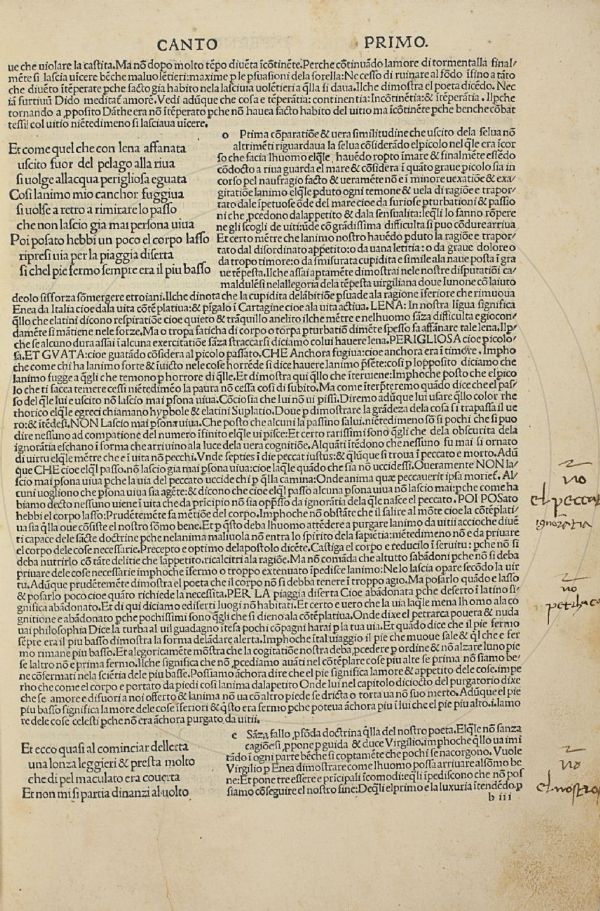 CANTO PRIMO.
ue che uiolare la castita. Ma nõ dopo molto tẽpo diuẽta icõtinẽte. Perche cõtinuãdo lamore di tormentalla final/
mẽte si lascia uicere bẽche maluolẽtieri: maxime ple psuasioni dela sorella: Ne cesso di ruinare al fõdo ifino a tãto
che diuẽto itẽperate pche facto gia habito nela lasciuia uolẽtieri a q̃lla si daua. Ilche dimostra el poeta dicẽdo. Nec
iã furtiuũ Dido meditat amorẽ. Vedi adũque che cosa e tẽperãtia: continentia: Incõtinẽtia: & itẽperãtia. Ilpche
tornando a pposito Dãthe era nõ itẽperato pche nõ haueа facto habito del uitio ma icõtinẽte pche benche cõbat
tessi col uitio niẽtedimeno si lasciaua uicere.
Et come quel che con lena affanata
uscito fuor del pelago alla riua
si uolge allacqua perigliosa eguata
Cosi lanimo mio canchor fuggiua
si uolse a retro a rimirar lo passo
che non lascio gia mai persona uiua
Poi posato hebbi un poco el corpo lasso
ripresi uia per la piaggia diserta
si chel pie fermo sempre era il piu basso
o Prima cõparatiõe & uera similitudine che uscito dela selua nõ
altrimẽti riguardaua la selua cõsiderãdo el picolo nel q̃le era icor
so che facia lhuomo elq̃le hauẽdo ropto imare & finalmẽte essẽdo
cõdocto a riua guarda el mare & cõsidera i quãto graue picolo sia in
corso pel naufragio facto & ueramẽte nõ e i minore uexatiõe & exa/
gitatiõe lanimo elq̃le p duto ogni temone & uela di ragiõe e traspor/
tato dale ipetuose õde del mare cioe da furiose pturbationi & passio
ni che pcedono dal appetito & dala sensualita: leq̃li lo fanno rõpere
ne gli scogli de uitii: ude cõ grãdissima difficulta si puo cõdure arriua
Et certo mẽtre che lanimo nostro hauẽdo pduto la ragiõe e traspor/
tato dal disordinato appetito o da uana letitia: o da graue dolore o
da tropo timore: o da smisurata cupidita e simile ala naue posta i gra
ue tẽpesta. Ilche assai aptamẽte dimostrai nele nostre disputatiõi ca/
maldulẽsi nel allegoria dela tẽpesta uirgiliana doue Iunone cõ laiuto
deolo si sforza sõmergere etroiani. Ilche dinota che la cupidita delãbitiõe psuade ala ragione iferiore che rimuoua
Enea da Italia cioe dala uita cõtẽplatiua: & pigalo i Cartagine cioe ala uita actiua. LENA: In nostra ligua significa
q̃llo che elatini dicono respiratiõe cioe quieto & trãquillo anelito ilche mẽtre e nelhuomo sãza difficulta egiocon/
damẽte si mãtiene nele forze. Ma o tropa faticha di corpo o tropa pturbatiõ dimẽte spesso fa affãnare tale lena. Ilp
che se alcuno dura assai i alcuna exercitatiõe sãza straccarsi diciamo colui hauere lena. PERIGLIOSA cioe picolo/
sa. ET GVATA: cioe guatãdo cõsidera al picolo passato. CHE Anchora fugiua: cioe anchora era i timore. Impho
che come chi ha lanimo forte & iuicto nele cose horrẽde si dice hauere lanimo psẽte: cosi p lopposito diciamo che
lanimo fugge a q̃gli che temono p horrore di q̃lle. Et dimostra qui q̃llo che iteruiene Imphoche posto che el pico
lo che ti facca temere cessi niẽtedimẽo la paura nõ cessa cosi di subito. Ma come iterptremo quãdo dice che el pas/
so del q̃le lui e uscito nõ lascio mai psona uiua. Cõciosia che lui nõ ui pissi. Diremo adũque lui usare q̃llo color rhe
thorico elq̃le egreci chiamano hypbole & elatini Suplatio. Doue p dimostrare la grãdeza dela cosa si trapassa il ue
ro: & itẽdesi. NON Lascio mai psona uiua. Che posto che alcuni la passino salui. niẽtedimeno sõ si pochi che si puo
dire nessuno ad compatione del numero ifinito elq̃le ui pisce: Et certo rarissimi sono q̃gli che dela obscurita dela
ignorãtia eschano i forma che arriuino ala luce dela uera cognitiõe. Alquãti itẽdono che nessuno fu mai si ornato
di uirtu elq̃le mẽtre che e i uita nõ pecchi. Vnde septies i die peccat iustus: & q̃lũque si troua i peccato e morto. Adũ
que CHE cioe elq̃l passo. nõ lascio gia mai psona uiua: cioe laq̃le quãdo che sia nõ uccidessi. Oueramente NON la/
scio mai psona uiua pche la uia del peccato uccide chi p q̃lla camina: Onde anima quæ peccauerit ipsa morieť. Al/
cuni uogliono che psona uiua sia agẽte: & dicono che cioe elq̃l passo alcuna psona uiua nõ lascio mai: pche come ha
biamo decto nessuno uiene i uita che da pricipio nõ sia oppsso da ignorãtia dela q̃le nasce el peccato. POI POSato
hebbi el corpo lasso: Prudẽtemẽte fa mẽtiõe del corpo. Imphoche nõ obstãte che il salire al mõte cioe la cõtẽplati
ua sia q̃lla oue cõsiste el nostro sõmo bene. Et p q̃sto deba lhuomo attẽdere a purgare lanimo da uitii accioche diuẽ
ti capace dele sãcte doctrine pche nelanima maliuola nõ entra lo spirito dela sapiẽtia: niẽtedimeno nõ e da priuare
el corpo dele cose necessarie. Precepto e optimo delapostolo dicẽte. Castiga el corpo e reducilo i seruitu: pche nõ si
deba nutrirlo cõ tãte delitie che lappetito. ricalcitri ala ragiõe. Ma nõ cõuiẽda che al tutto si abãdoni pche nõ si deba
priuare dele cose necessarie imphoche sifermo e troppo extenuato ipedisce lanimo: Ne lo lascia opare secõdo la uir
tu. Adũque prudẽtemẽte dimostra el poeta che il corpo nõ si debba tenere i troppo agio. Ma posarlo quãdo e lasso
& posarlo poco cioe quãto richiede la necessita. PER LA piaggia diserta Cioe abãdonata pche deserto i latino si/
gnifica abandonato. Et di qui diciamo ediserti luoghi nõ habitati. Et certo e uero che la uia laq̃le mena lhomo ala co/
gnitione e abandonato pche pochissimi sono q̃gli che si dieno ala cõtẽplatiua. Onde dixe el petrarca pouera & nuda
uai philosophia Dice la turba al uil guadagno itesa pochi cõpagni harai p la tua uia. Et quãdo dice che il pie fermo
sẽpre era il piu basso dimostra la forma deladare alerta. Imphoche ital uiaggio il pie che muoue sale & q̃l che e fer/
mo riman piu basso. Et allegoricamẽte mõstra che la cogitatiõe nostra deba pcedere p ordine & nõ alzare luno pie
se laltro nõ e prima fermo. Ilche significa che nõ pcediamo auãti nel cõtẽplare cose piu alte se prima nõ siamo be/
ne cõfermati nela sciẽtia dele piu basse. Possiamo ãchora dire che el pie significa lamore & appetito dele cose. impe
rho che come el corpo e portato da piedi cosi lanima dalapetito. Onde lui nel capitolo diciocto del purgatorio dixe
che se amore e difuori a noi offerto & lanima nõ ua cõ altro piede se dricta o torta ua nõ suo merto. Adũque el pie
piu basso significa lamore dele cose iferiori & q̃sto era fermo pche poteua ãchora piu i lui che el pie piu alto. i lamo
re dele cose celesti pche nõ era ãchora purgato da uitii.
Et ecco quasi al cominciar dellerta
una lonza leggieri & presta molto
che di pel maculato era couerta
Et non mi si partia dinanzi al uolto
e Sãza fallo psõda doctrina q̃lla del nostro poeta. Elq̃le nõ sanza
cagiõe si ppone p guida & duce Virgilio. imphoche q̃llo ua imi
rãdo i ogni parte bẽche si coptamẽte che pochi se nacorgono. Vuole
Virgilio p Enea dimostrare come lhuomo possa arriuare alsõmo be
ne: Et pone tre essere e pricipali icomodi: eq̃li ipediscono che nõ pos
siamo cõseguire el nostro fine: Deq̃li el primo e la luxuria itendẽdo. p
b iii
no
el pecca
ignorãtia
no
no
el nostro